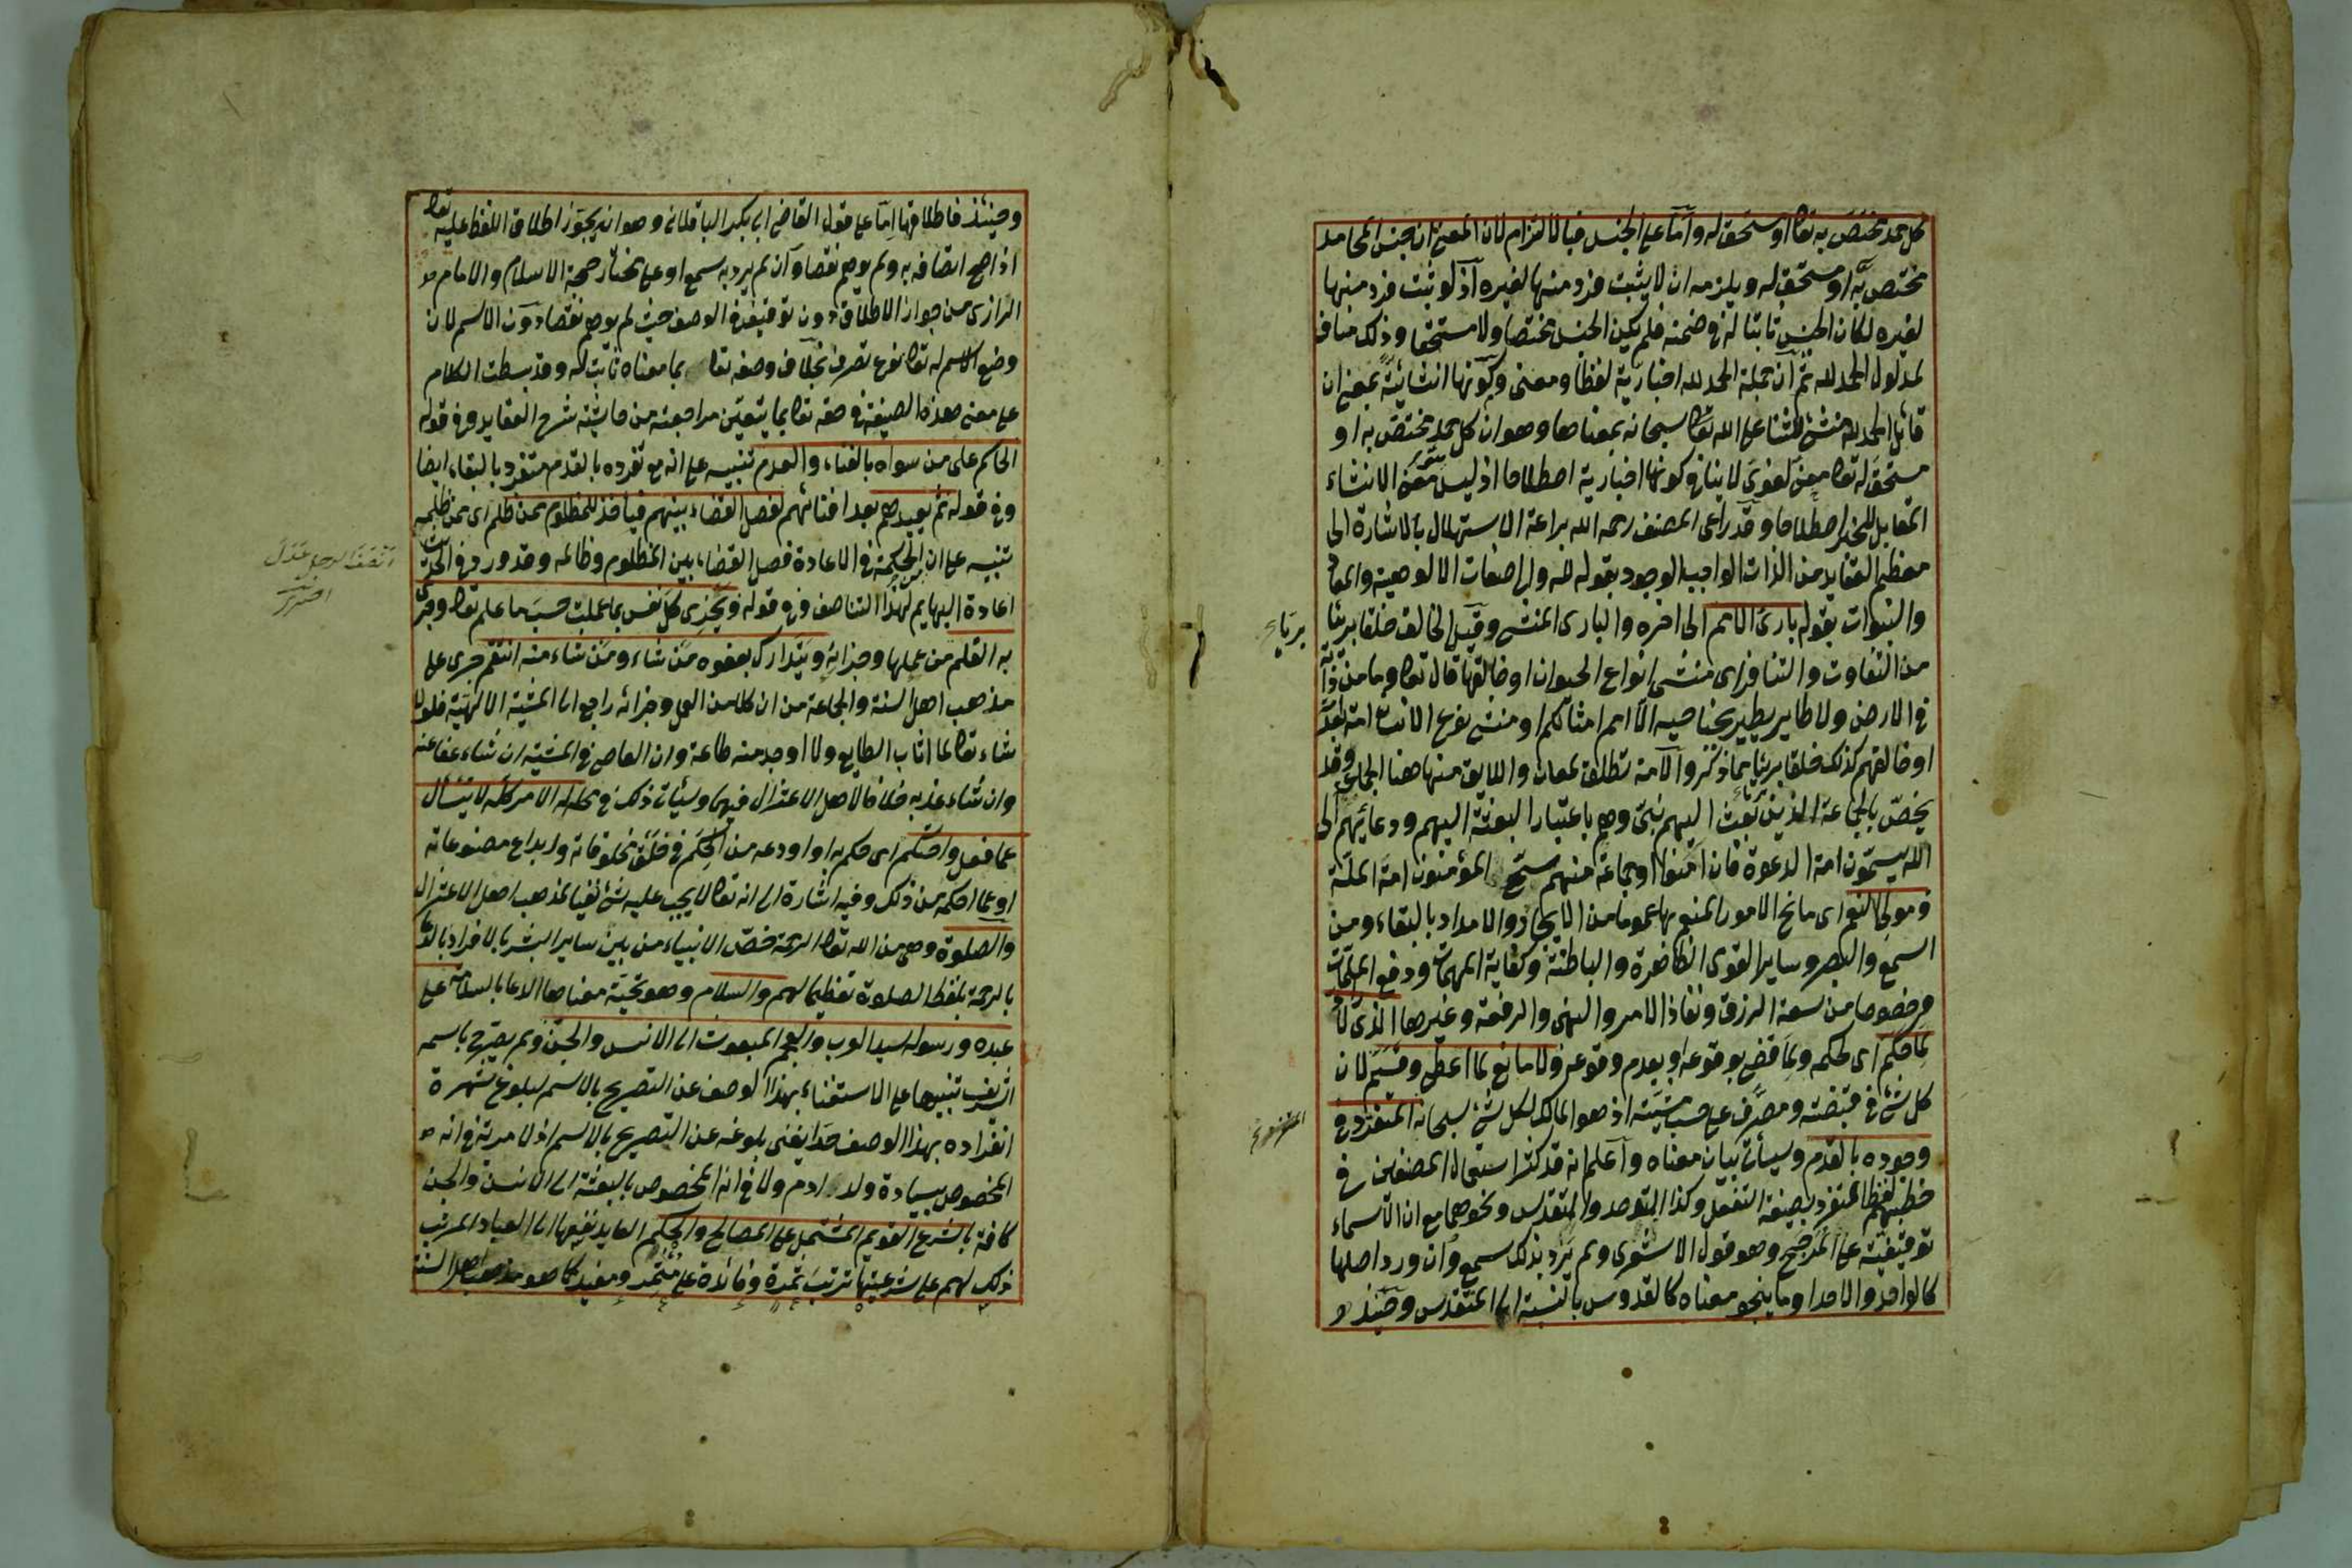 كل حمد مختص به تعا او مستحق له وأما على الجنس فبالالتزام لان المعنى ان جنس المحامد
مختص به او مستحق له ويلزمه ان لا يثبت فرد منها لغيره اذ لو ثبت فرد منها
لغيره لكان الجنس ثابتا له في ضمنه فلم يكن الجنس مختصا ولا مستحقا وذلك مناف
لمدلول الحمد لله ثم ان جملة الحمد لله اخبارية لفظا ومعنى وكونها انشائية بمعنى ان
قائل الحمد لله منشئ للثناء على الله تعا سبحانه بمعناها وهو ان كل حمد مختص به او
مستحق له تعا معنى لغوى لا ينافي كونها اخبارية اصطلاحا اذ ليس معنى الانشاء
المقابل للخبر اصطلاحا وقد راعى المصنف رحمه الله براعة الاستهلال بالاشارة الى
معظم العقايد من الذات الواجب الوجود بقوله لله والى صفات الالوهية والمعاد
والنبوات بقوله بارئ الامم الى اخره والبارى المنشئ وقيل الخالق خلقا بريئا
من التفاوت والتنافر اى منشئ انواع الحيوان او خالقها قال تعا وما من دابة
في الارض ولا طاير يطير بجناحيه الا امم امثالكم او منشئ نوع الانسان امة بعد
او خالقهم كذلك خلقا بريئا مما ذكر والامة تطلق لمعان واللايق منها هنا الجماعة وقد
يخص بالجماعة الذين بعث اليهم نبى وهم باعتبار البعثة اليهم ودعائهم الى
الله يسمون امة الدعوة فان امنوا او جماعة منهم سمى المؤمنون امة الملة
ومولى النعم اى مانح الامور المنعم بها عموما من الايجاد والامداد بالبقاء ومن
السمع والبصر وساير القوى الظاهرة والباطنة وكفاية المهمات ودفع الملمات
وخصوصا من سعة الرزق ونفاذ الامر والنهى والرفعة وغيرها الذى لا
لما حكم اى لحكمه ولما قضى بوقوعه او بعدم وقوعه ولا مانع لما اعطى وقسم لان
كل شئ في قبضته ومصرف على حسب مشيته اذ هو المالك لكل شئ سبحانه المتفرد في
وجوده بالقدم وسيأتى بيان معناه واعلم انه قد كثر استعمال المصنفين في
خطبهم لفظ المتفرد بصيغة التفعل وكذا المتوحد والمتقدس ونحوهما مع ان الاسماء
توقيفية على المرجح وهو قول الاشعرى ولم يرد بذلك سمع وان ورد اصلها
كالواحد والاحد او ما ينحو معناه كالقدوس بالنسبة الى المتقدس وحينئذ
بريئا
وحينئذ فاطلاقها اما على قول القاضى ابى بكر الباقلانى وهو انه يجوز اطلاق اللفظ عليه تعا
اذا صح اتصافه به ولم يوهم نقصا وان لم يرد به سمع او على مختار حجة الاسلام والامام
الرازى من جواز الاطلاق دون توقيف في الوصف حيث لم يوهم نقصا دون الاسم لان
وضع الاسم له تعا نوع تصرف بخلاف وصفه تعا بما معناه ثابت له وقد بسطت الكلام
على معنى هذه الصيغة في حقه تعا بما يتعين مراجعته من حاشية شرح العقايد وفي قوله
الحاكم على من سواه بالفناء والعدم تنبيه على انه مع تفرده بالقدم متفرد بالبقاء ايضا
وفي قوله ثم يعيدهم بعد افنائهم لفصل القضاء بينهم فيأخذ للمظلوم ممن ظلم اى ممن ظلمه
تنبيه على ان الحكمة في الاعادة فصل القضاء بين المظلوم وظالمه وقد ورد في الحديث
اعادة البهايم لهذا التناصف وفي قوله ويجزى كل نفس بما عملت حسب ما علم تعا وجرى
به القلم من عملها وجزايه ويتدارك بعفوه من شاء ومن شاء منه انتقم جرى على
مذهب اهل السنة والجماعة من ان كلا من العمل وجزائه راجع الى المشية الالهية فلولا
شاء تعا لما اثاب الطايع ولا اوجد منه طاعة وان العاصى في المشية ان شاء عفا عنه
وان شاء عذبه خلافا لاهل الاعتزال فيهما وسيأتى ذلك في محله له الامر كله لا يسأل
عما فعل واحتكم اى حكم به او اودعه من الحكم في خلق مخلوقاته وابداع مصنوعاته
او عما احكمه من ذلك وفيه اشارة الى انه تعا لا يجب عليه شئ نفيا لمذهب اهل الاعتزال
والصلوة وهى من الله تعا الرحمة خص الانبياء من بين ساير البشر بالافراد بالدعاء
بالرحمة بلفظ الصلوة تعظيما لهم والسلام وهو تحية معناها الدعا بالسلامة على
عبده ورسوله سيد العرب والعجم المبعوث الى الانس والجن ولم يصرح باسمه
الشريف تنبيها على الاستغناء بهذا الوصف عن التصريح بالاسم لبلوغ شهرة
انفراده بهذا الوصف حدا يغنى بلوغه عن التصريح بالاسم اذ لا مرية في انه
المخصوص بسيادة ولد ادم ولا في انه المخصوص بالبعثة الى الانس والجن
كافة بالشرع القويم المشتمل على المصالح والحكم العايد نفعها الى العباد المرتب
ذلك لهم على شرعيتها ترتب ثمرة وفائدة على مثمر ومفيد كما هو مذهب اهل السنة